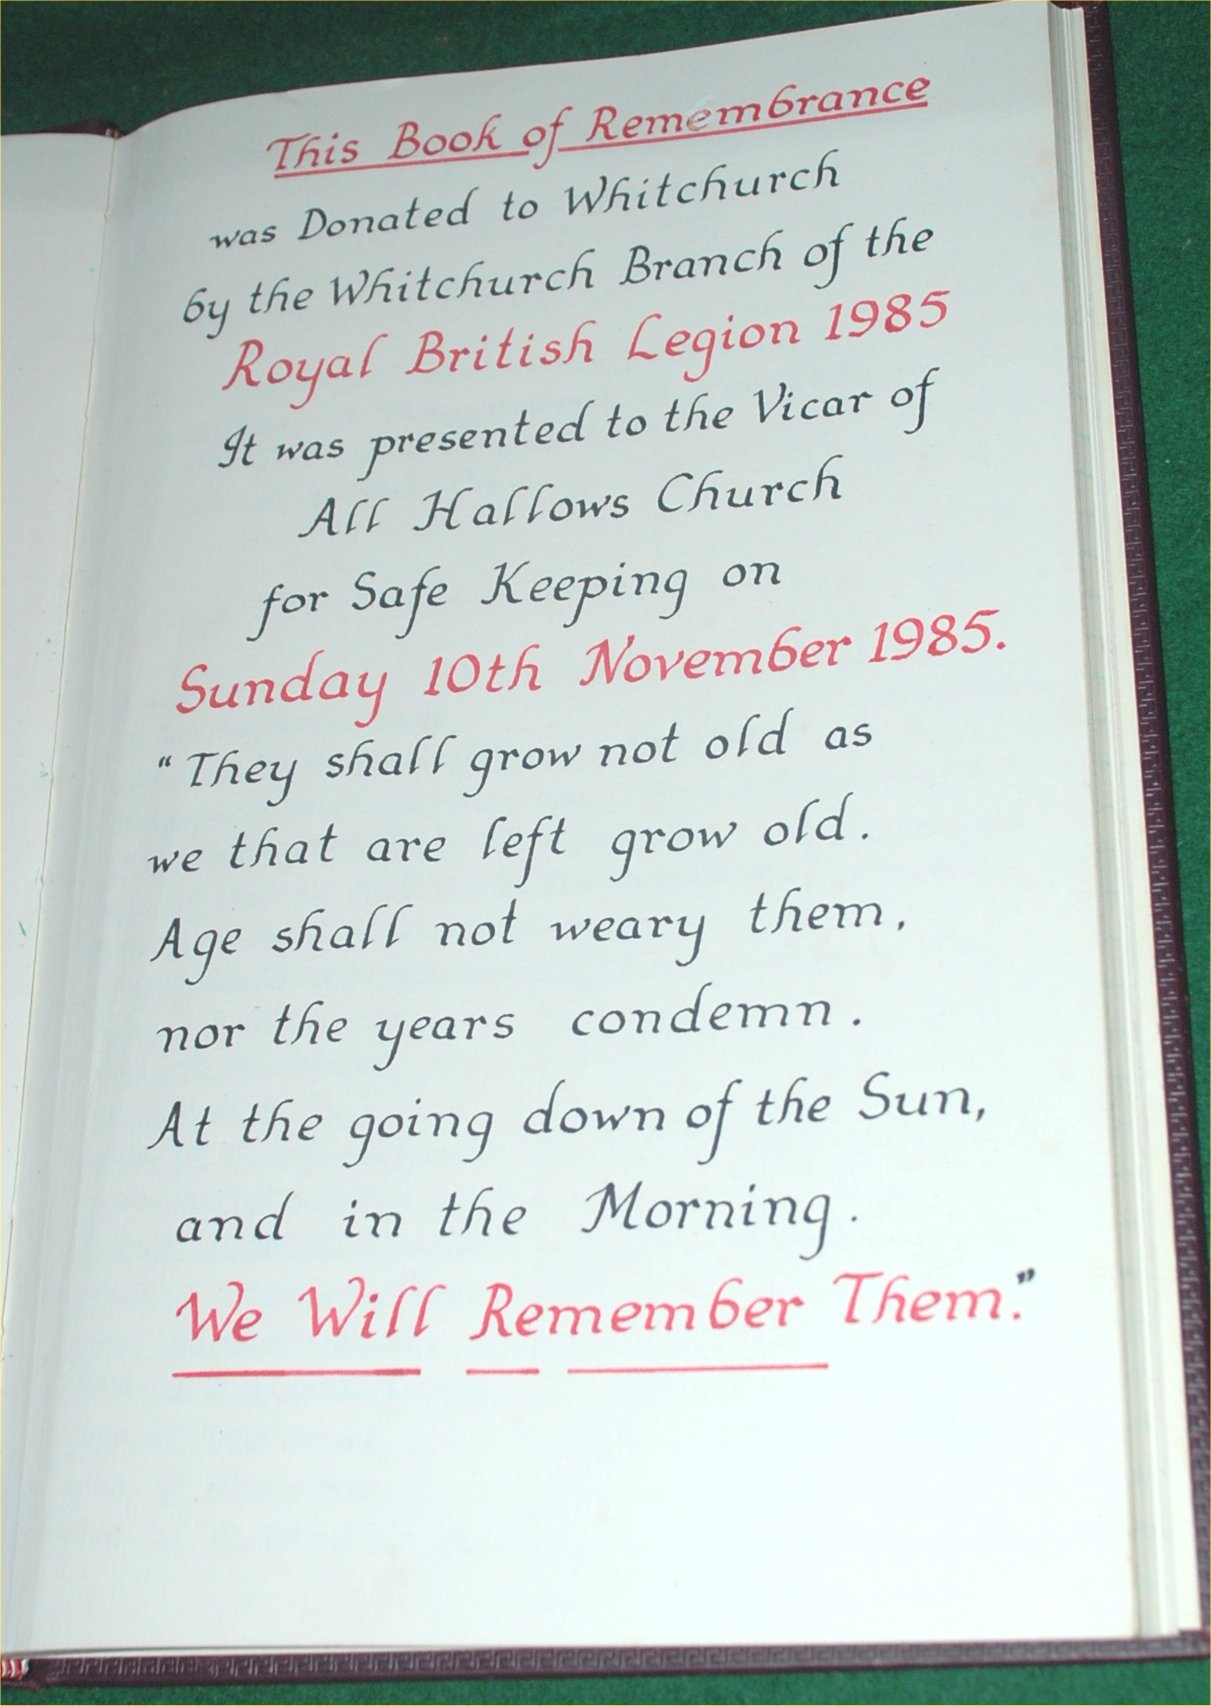 This Book of Remembrance
was Donated to Whitchurch
by the Whitchurch Branch of the
Royal British Legion 1985
It was presented to the Vicar of
All Hallows Church
for Safe Keeping on
Sunday 10th November 1985.
“They shall grow not old as
we that are left grow old.
Age shall not weary them,
nor the years condemn.
At the going down of the Sun,
and in the Morning.
We Will Remember Them.”